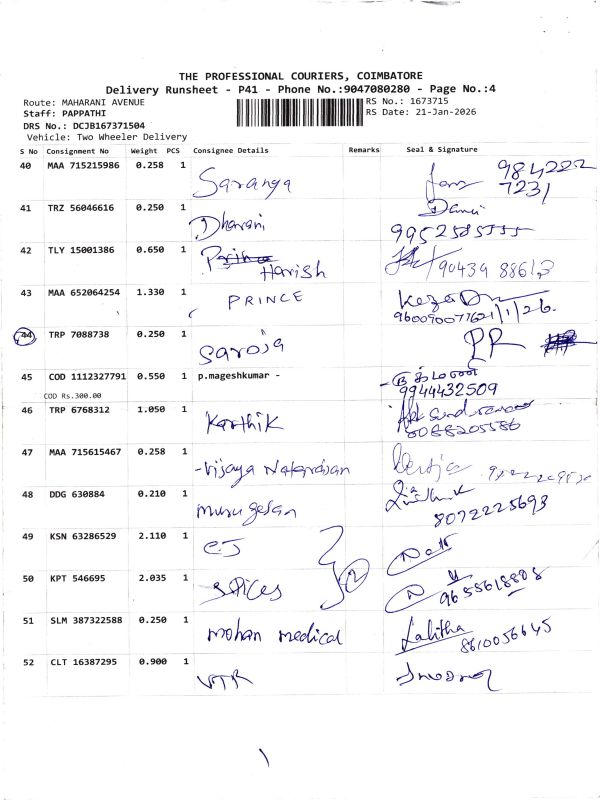 THE PROFESSIONAL COURIERS, COIMBATORE
Delivery Runsheet - P41 - Phone No.:9047080280 - Page No.:4
Route: MAHARANI AVENUE
Staff: PAPPATHI
DRS No.: DCJB167371504
Vehicle: Two Wheeler Delivery
RS No.: 1673715
RS Date: 21-Jan-2026
S No Consignment No Weight PCS Consignee Details Remarks Seal & Signature
40 MAA 715215986 0.258 1 Saranya 984222
7231
41 TRZ 56046616 0.250 1 Dharani
9952585555
42 TLY 15001386 0.650 1
Harish 90439 88613
43 MAA 652064254 1.330 1 PRINCE
9600900776 21/1/26.
44 TRP 7088738 0.250 1 Saroja PR
45 COD 1112327791 0.550 1 p.mageshkumar -
9944432509
COD Rs.300.00
46 TRP 6768312 1.050 1 Karthik
8088205586
47 MAA 715615467 0.258 1 -Vijaya Natarajan
48 DDG 630884 0.210 1 murugesan
8072225693
49 KSN 63286529 2.110 1 CJ
2
50 KPT 546695 2.035 1 Spices 9655618808
51 SLM 387322588 0.250 1 mohan medical Lalitha
8610056645
52 CLT 16387295 0.900 1 VTR